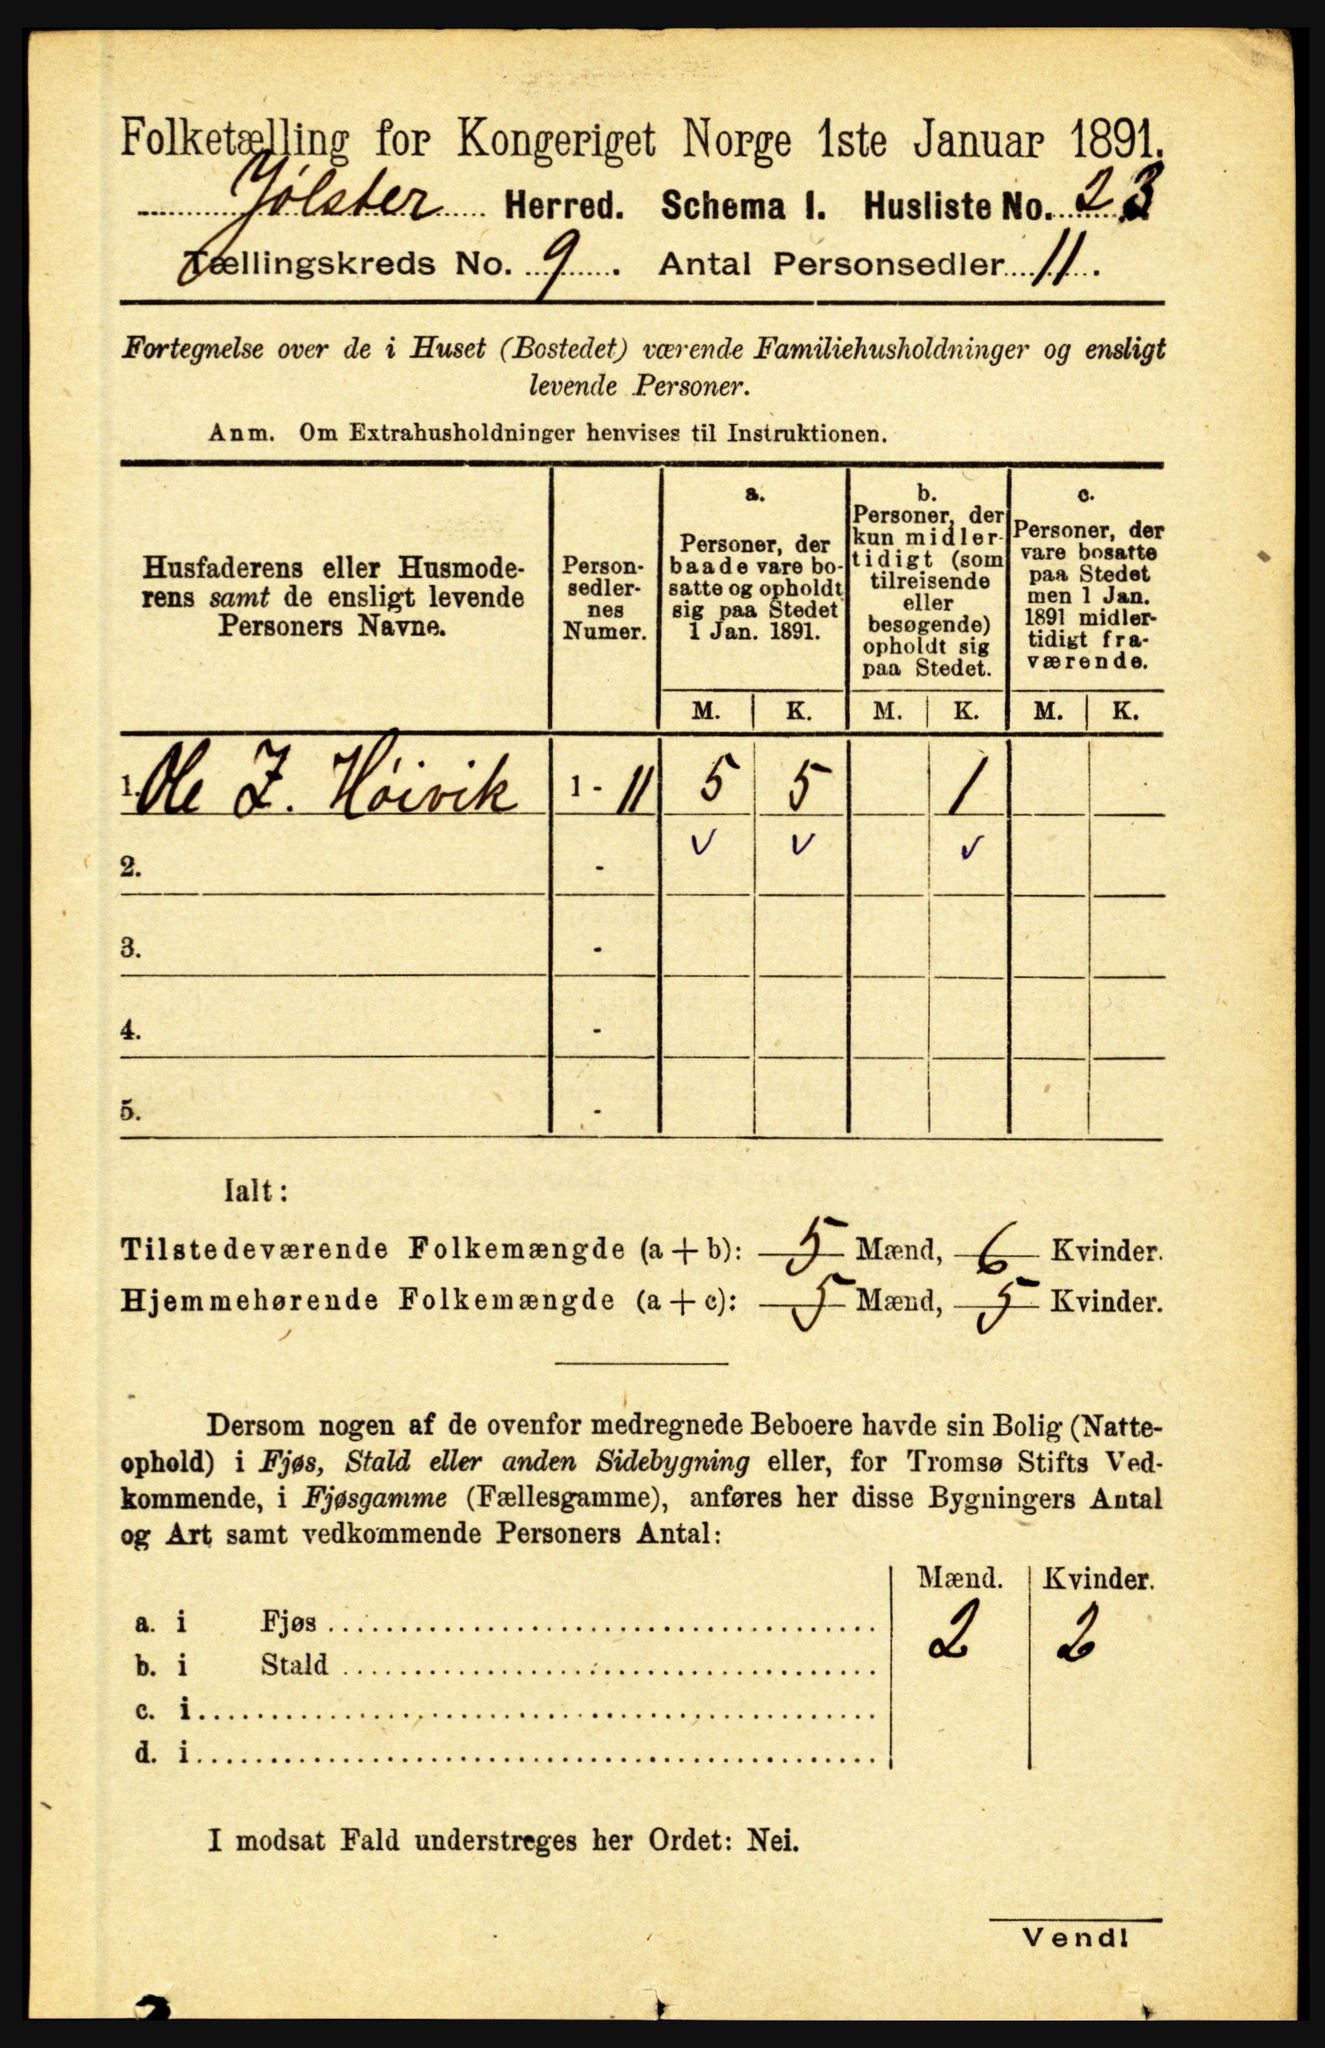 Folketælling for Kongeriget Norge 1ste Januar 1891.
Jølster Herred. Schema I. Husliste No. 23
Tællingskreds No. 9. Antal Personsedler 11.
Fortegnelse over de i Huset (Bostedet) værende Familiehusholdninger og ensligt
levende Personer.
Anm. Om Extrahusholdninger henvises til Instruktionen.
Husfaderens eller Husmode-
rens samt de ensligt levende
Personers Navne.
Person-
sedler-
nes
Numer.
a.
Personer, der
baade vare bo-
satte og opholdt
sig paa Stedet
1 Jan. 1891.
b.
Personer, der
kun midler-
tidigt (som
tilreisende
eller
besøgende)
opholdt sig
paa Stedet.
c.
Personer, der
vare bosatte
paa Stedet
men 1 Jan.
1891 midler-
tidigt fra-
værende.
M. K. M. K. M. K.
1. Ole Z. Høivik 1 - 11 5 5 1
2. - v v v
3. -
4. -
5. -
Ialt:
Tilstedeværende Folkemængde (a + b): 5 Mænd, 6 Kvinder.
Hjemmehørende Folkemængde (a + c): 5 Mænd, 5 Kvinder.
Dersom nogen af de ovenfor medregnede Beboere havde sin Bolig (Natte-
ophold) i Fjøs, Stald eller anden Sidebygning eller, for Tromsø Stifts Ved-
kommende, i Fjøsgamme (Fællesgamme), anføres her disse Bygningers Antal
og Art samt vedkommende Personers Antal:
Mænd. Kvinder.
a. i Fjøs 2 2
b. i Stald
c. i
d. i
I modsat Fald understreges her Ordet: Nei.
Vend!